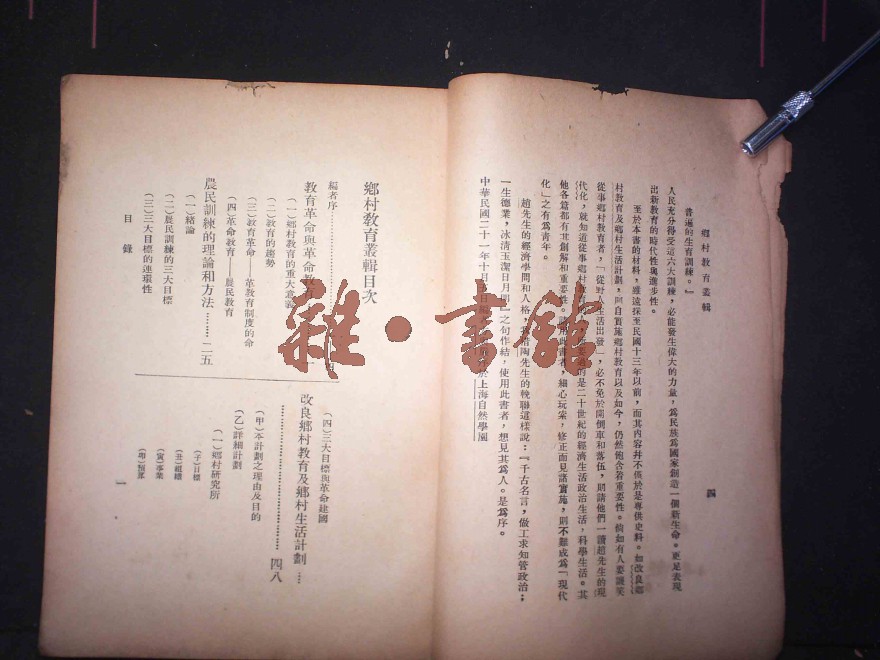 鄉村教育叢輯
四
普遍的生育訓練。』
人民充分得受這六大訓練，必能發生偉大的力量，為民族為國家創造一個新生命。更足表現
出新教育的時代性與進步性。
至於本書的材料，雖遠採至民國十三年以前，而其內容并不僅於是專供史料。如改良鄉
村教育及鄉村生活計劃，與自實施鄉村教育以及如今，仍然飽含着重要性。倘如有人要譏笑
從事鄉村教育者，「從野人生活出發」，必不免於開倒車和落伍，則請他們一讀趙先生的現
代化，就知道從事鄉村教育的是二十世紀的經濟生活政治生活，科學生活。其
他各篇都有其創解和重要性。請用此書者，細心玩索，修正而見諸實施，則不難成為「現代
化」之有為青年。
趙先生的經濟學問和人格，陶先生的輓聯這樣說：『千古名言，做工求知管政治；
一生德業，冰清玉潔日月明』之句作結，使用此書者，想見其為人。是為序。
中華民國二十一年十月日於上海自然學園
鄉村教育叢輯目次
編者序
教育革命與革命教育
（一）鄉村教育的重大意義
（二）教育的趨勢
（三）教育革命——革教育制度的命
（四）革命教育——農民教育
農民訓練的理論和方法……二五
（一）緒論
（二）農民訓練的三大目標
（三）三大目標的連環性
（四）三大目標與革命建國
改良鄉村教育及鄉村生活計劃……
……四八
（甲）本計劃之理由及目的
（乙）詳細計劃
（一）鄉村研究所
（子）目標
（丑）組織
（寅）事業
（卯）預算
目錄
一
雜·書館